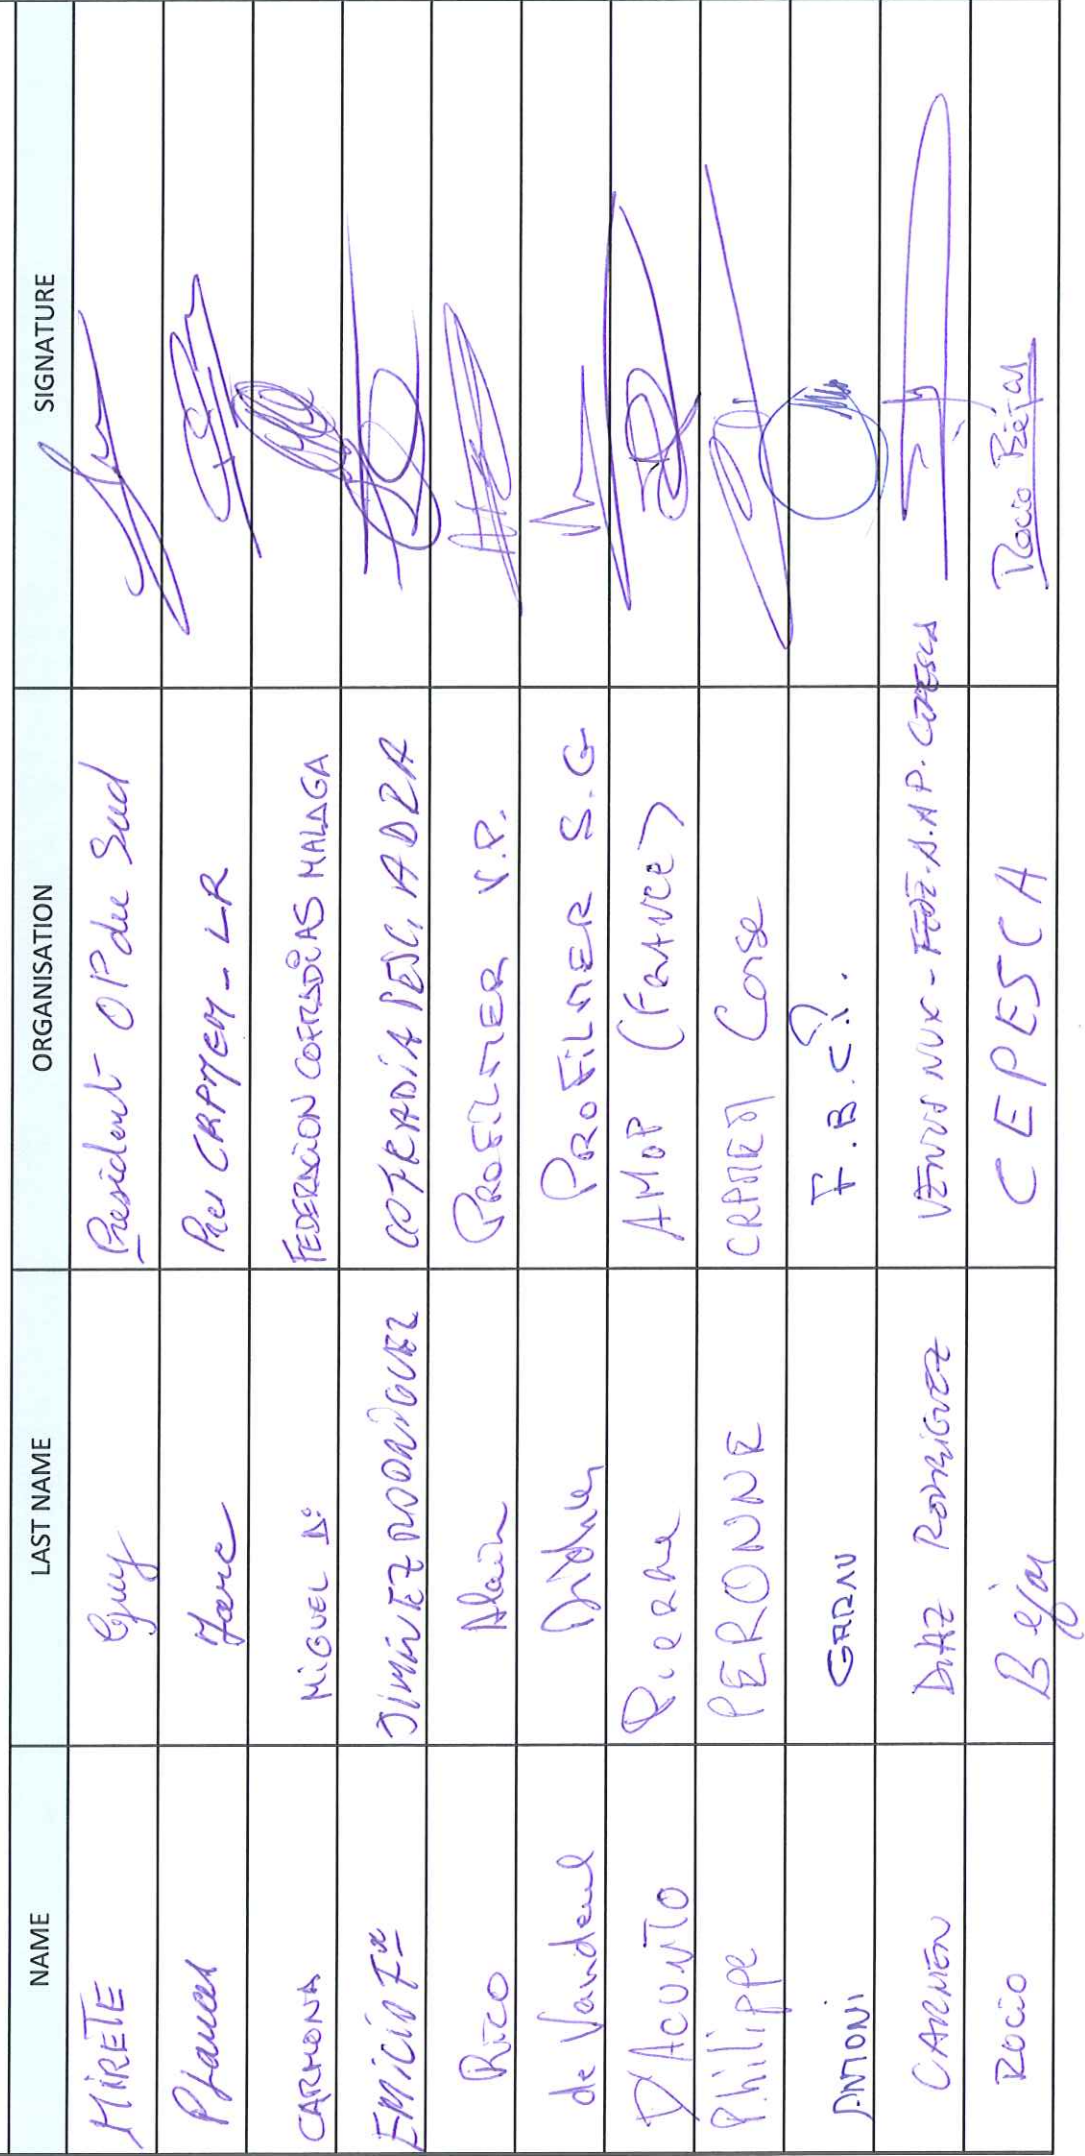 NAME LAST NAME ORGANISATION SIGNATURE
MIRETE Guy President OP du Sud
Marc CRPMEM - LR
CARMONA MIGUEL FEDERACION COFRADIAS MALAGA
EMILIO Fº JIMÉNEZ RODRIGUEZ COFRADÍA PESC. ADRA
RICO Alain PROFILMER V.P.
de Vandeul Didier PROFILMER S.G
D'ACUNTO Pierre AMOP (FRANCE)
Philippe PERONNE CRPMEM Corse
ANTONI GARAU F.B.C.P.
CARMEN DIAZ RODRIGUEZ
ROCIO Bejar CEPESCA Rocio Béjar